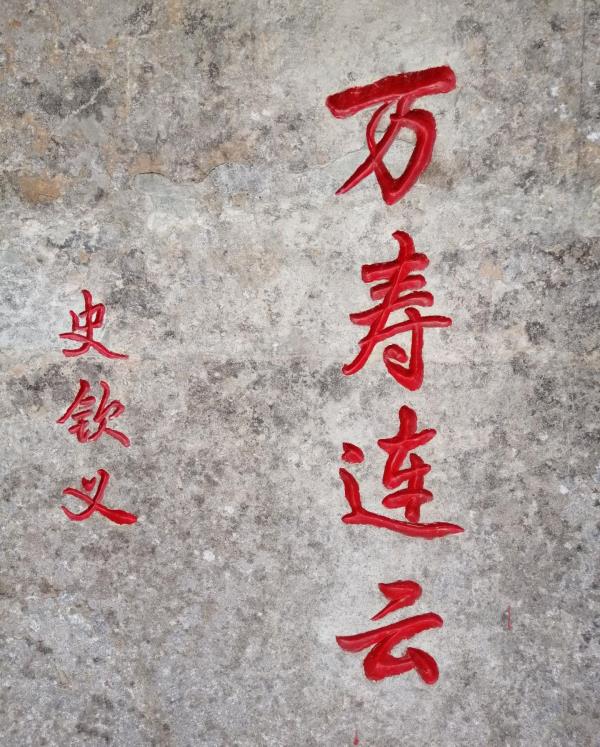 万寿连云
史钦义